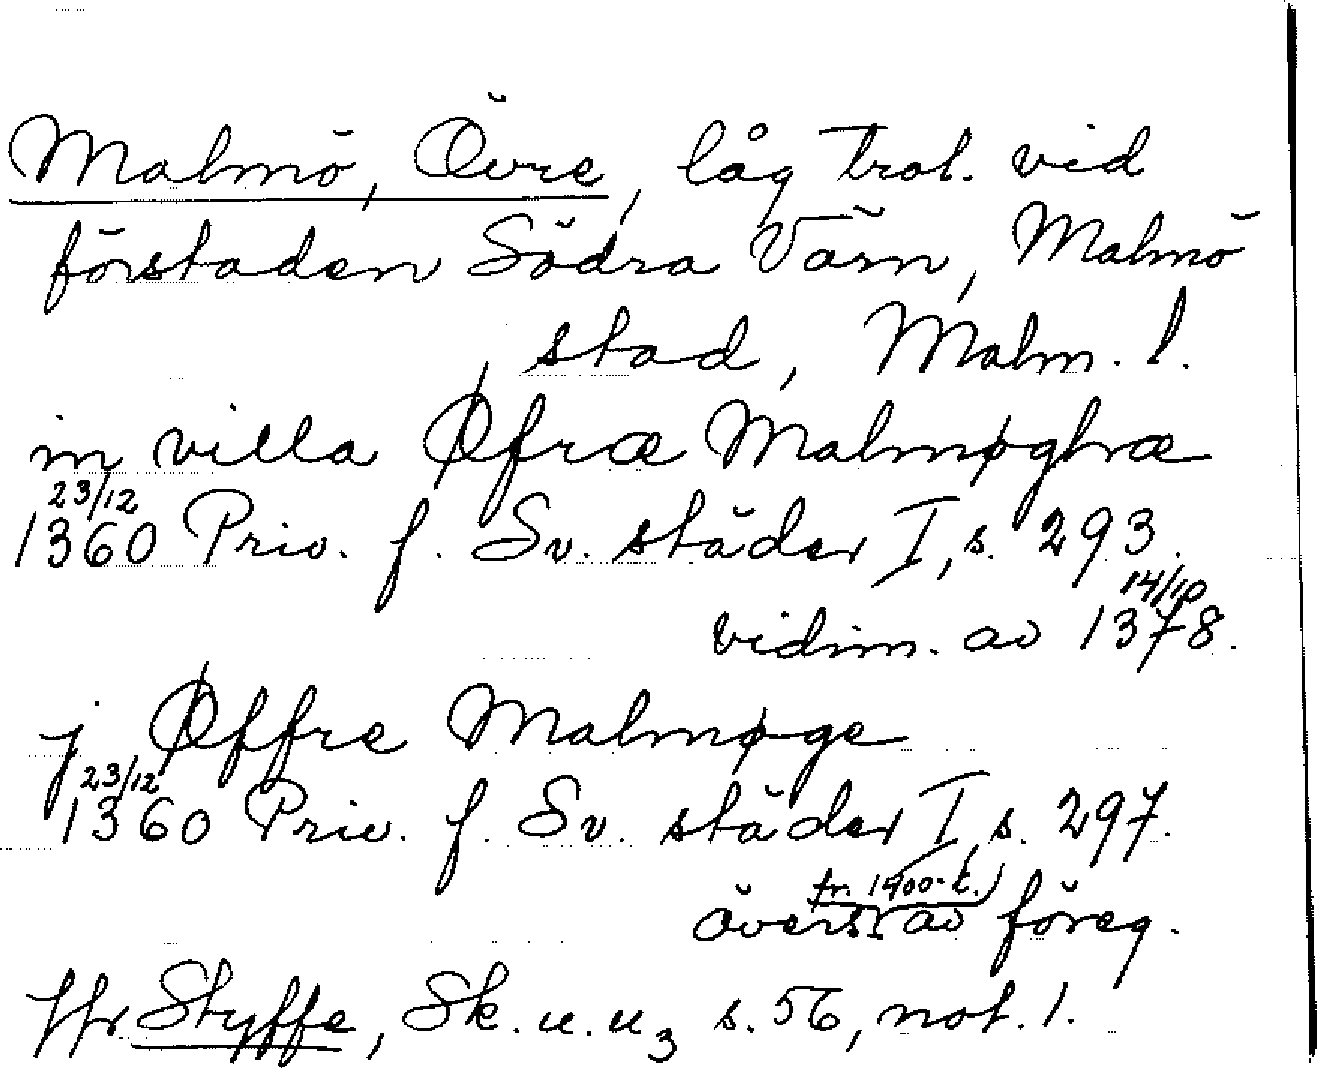 Malmö, Övre, låg trol. vid
förstaden Södra Värn, Malmö
stad, Malm. l.
in villa Øfræ Malmøghræ
23/12
1360 Priv. f. Sv. städer I, s. 293.
14/10
vidim. av 1378.
j Øffre Malmøge
23/12
1360 Priv. f. Sv. städer I, s. 297.
fr. 1400-t.)
övers. av föreg.
Jfr Styffe, Sk. u. u3 s. 56, not. 1.